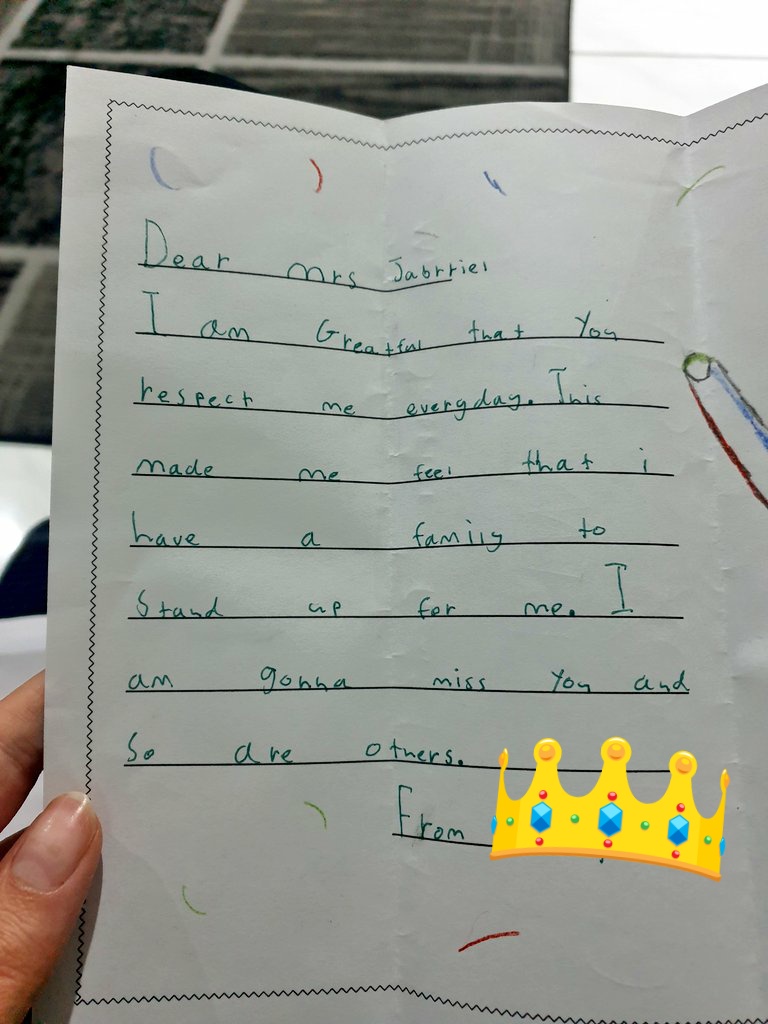 Dear Mrs Jabrriel
I am Greatful that You
respect me everyday. This
made me feel that i
have a family to
Stand up for me. I
am gonna miss You and
So are others.
From